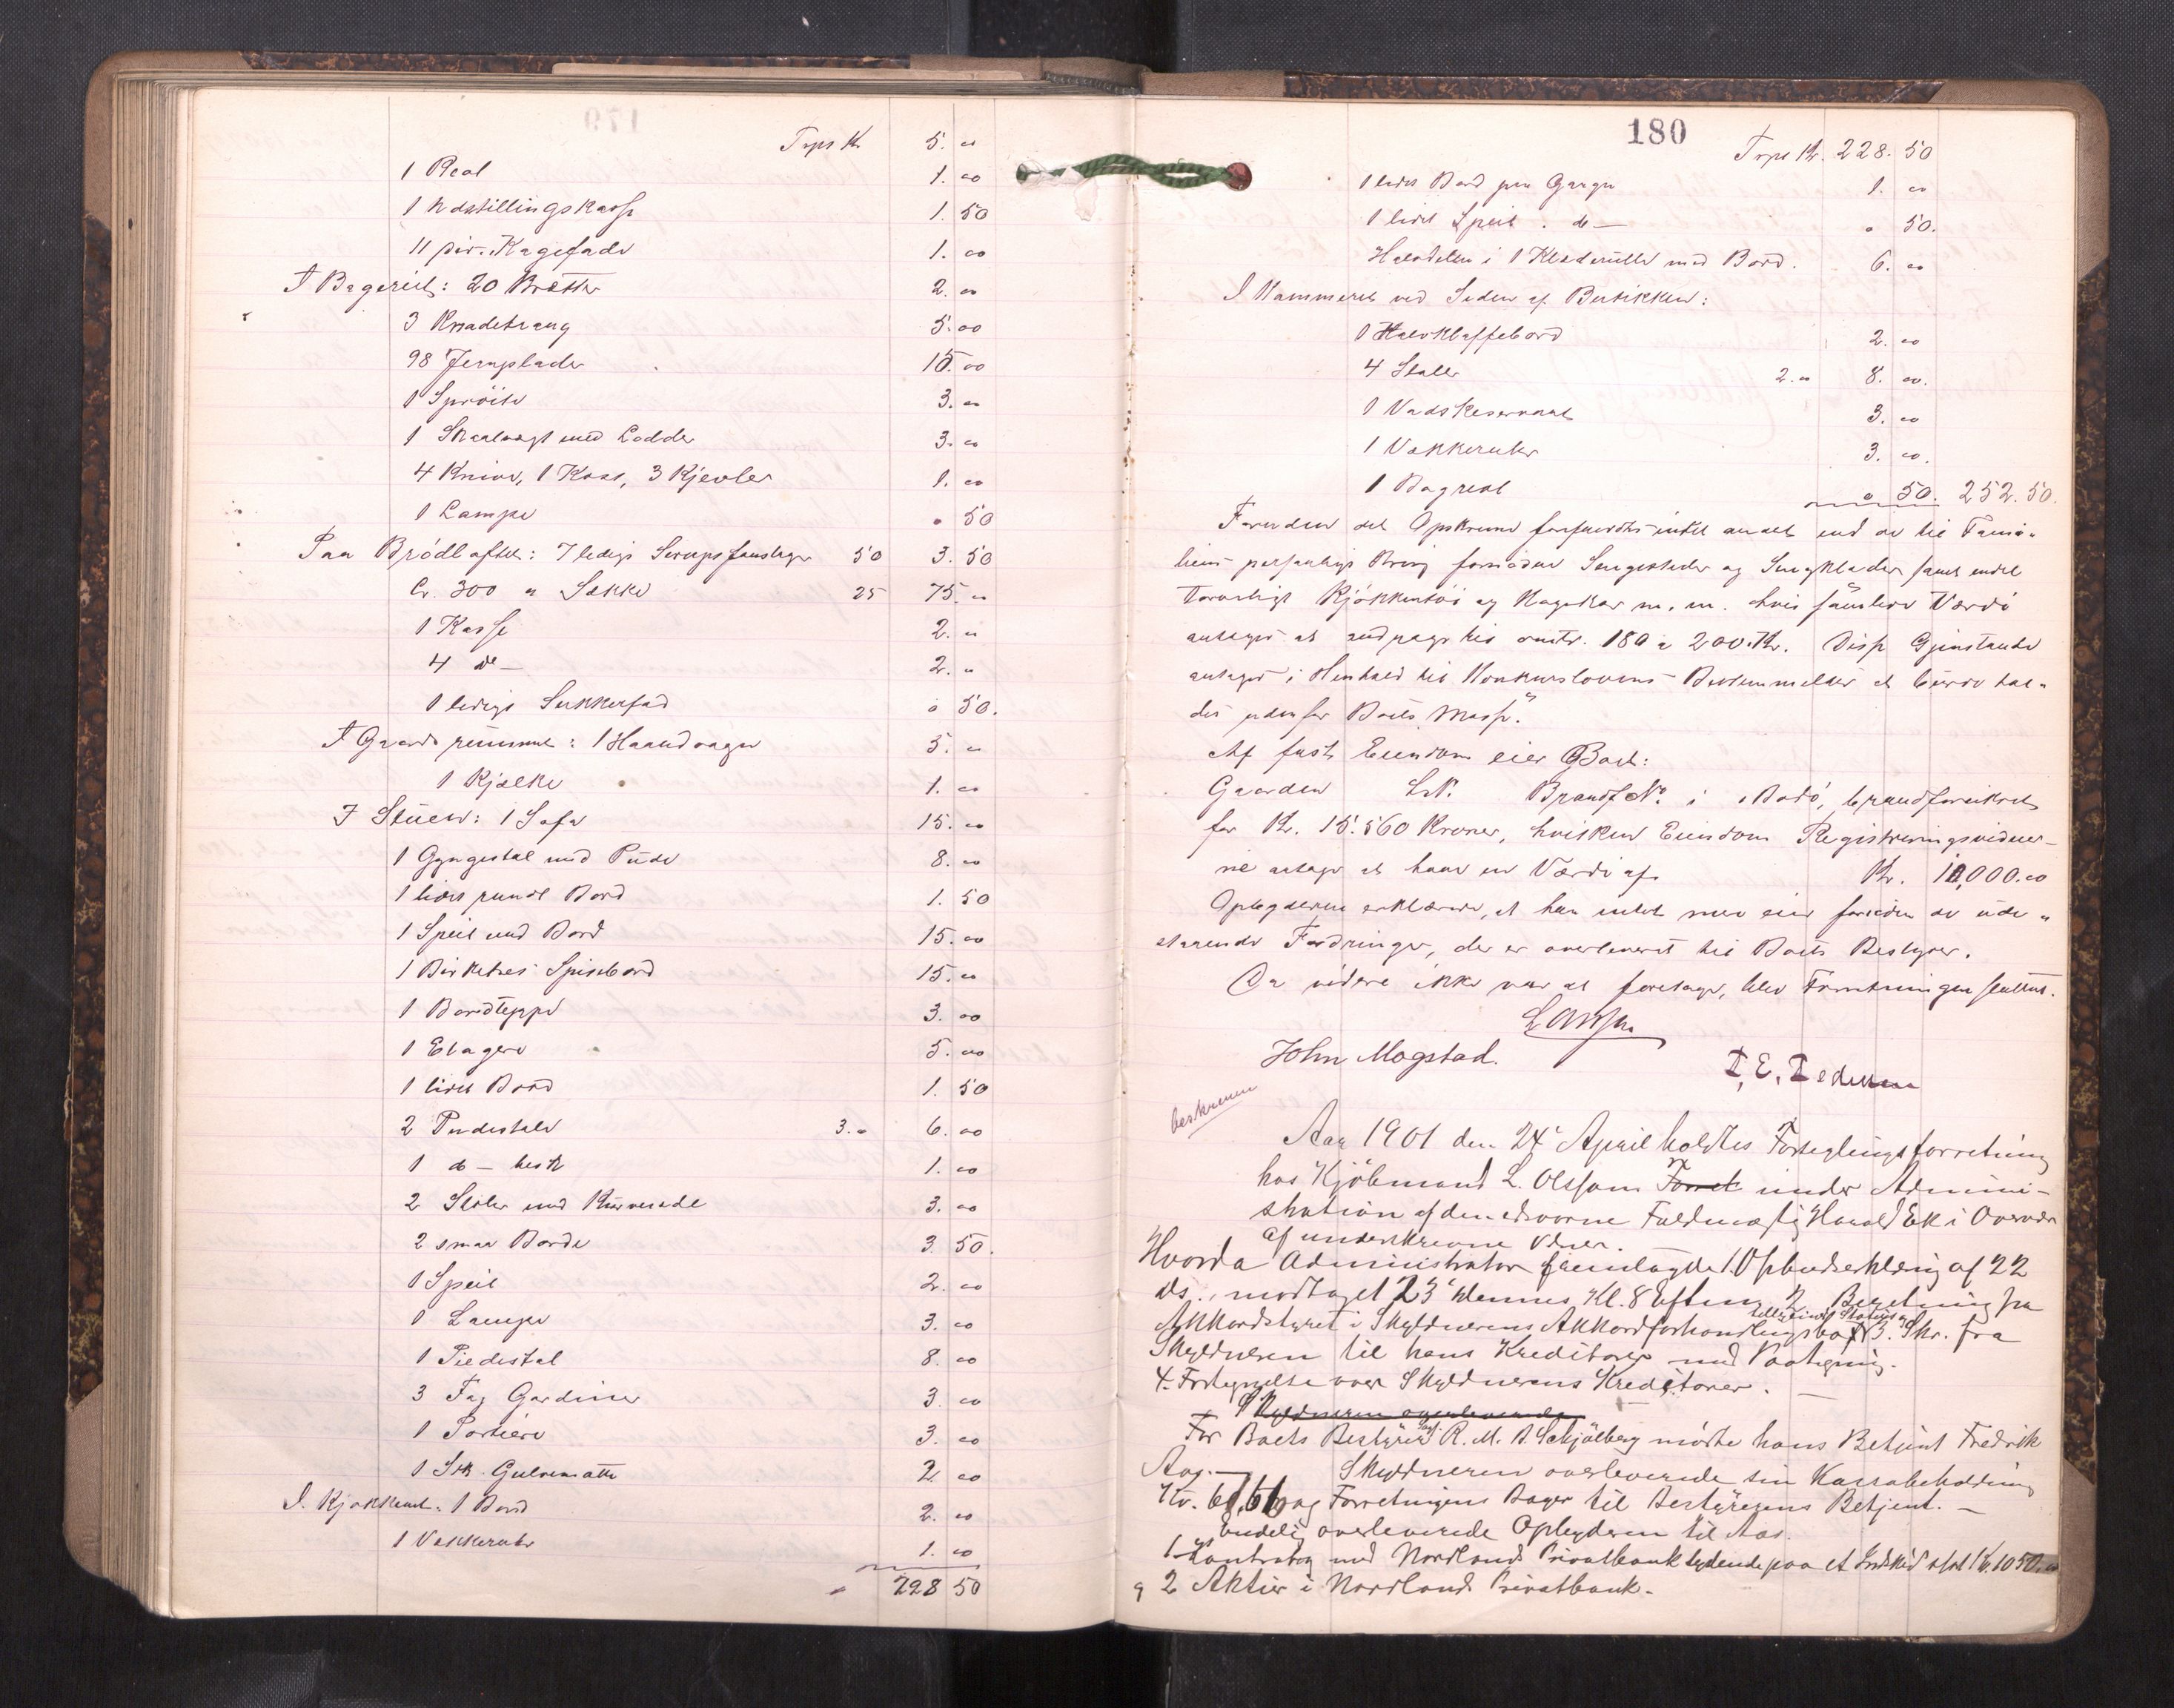 Trps Kr 5. "
1 Reol 1. oo
1 Udstillingskasse 1. 50
11 div. Kagefade 1. oo
I Bageriet: 20 Brætter 2. "
3 Knadetraug 5. oo
98 Jernplader 15. oo
1 Sprøite 3. "
1 Skaalvægt med Lodder 3. oo
4 Knive, 1 Kost, 3 Kjevler 1. oo
1 Lampe " 50
Paa Brødloftet: 7 ledige Sirupsfoustager 50 3. 50
Ca. 300 " Sække 25 75. "
1 Kasse 2. "
4 do — 2. "
1 ledigt Sukkerfad " 50.
I Gaardsrummet: 1 Haandvogn 5. "
1 Kjælke 1. oo
I Stuen: 1 Sofa 15. oo
1 Gyngestol med Pude 8. oo
1 lidet rundt Bord 1. 50
1 Speil med Bord 15. oo
1 Birketræs Spisebord 15. "
1 Bordteppe 3. oo
1 Etagere 5. oo
1 lidet Bord 1. 50
2 Pindestole 3. " 6. oo
1 do — 1. oo
2 Stoler med Kurvesæde 3. oo
2 smaa Borde 3 50.
1 Speil 2. oo
1 Lampe 3. oo
1 Piedestal 8. oo
3 Fag Gardiner 3. oo
1 Portiere 3. oo
1 Stk. Gulvmatte 2 oo
I Kjøkkenet: 1 Bord 2. oo
1 Vækkeruhr 1. oo
" 228 50
180
Trps Kr. 228. 50
1 lidet Bord paa Gangen 1. oo
1 lidet Speil . do — " 50.
Halvdelen i 1 Klæderulle med Bord. 6. oo
I Kammeret ved Siden af Butikken:
1 Halvklaffebord 2. oo
4 Stoler 2. " 8. oo.
1 Vaskeservant 3. oo
1 Vækkeruhr 3. oo.
1 Bagreol " 50. 252. 50.
Foruden det Opskrevne forefandtes intet andet end de til Fami-
liens personlige Brug fornødne Sengesteder og Sengklæder samt endel
tarveligt Kjøkkentøi og Kagekar m. m. hvis samlede Værdi
antages at andrage til omtr. 180 a 200 Kr. Disse Gjenstande
antages i Henhold til Konkurslovens Bestemmelser at burde hol-
des udenfor Boets Masse."
Af fast Eiendom eier Boet:
Gaarden L.N. Brandf. No. i Bodø, brandforsikret
for Kr. 15.560 Kroner, hvilken Eiendom Registreringsvidner-
ne antage at have en Værdi af Kr. 10,000.oo
Opbyderen erklærede, at han intet mer eier foruden de ude-
staaende Fordringer, der er overleveret til Boets Bestyrer.
Da videre ikke var at foretage, blev Forretningen sluttet.
Larssen
John Mogstad. I. E. Pedersen
beskreven
Aar 1901 den 24' April holdtes Forseglingsforretning
hos Kjøbmand L. Olssom Forret under Admini-
stration af den edsvorne Fuldmægtig Harald Eek i Overvær
af underskrevne Vidner.
Hvorda Administrator fremlagde 1. Opbudserklæring af 22
ds., modtaget 23' dennes Kl. 8 Eftm. 2. Beretning fra
Akkordstyret i Skyldnerens Akkordforhandlingsbo tilligemed Status, 3. Skr. fra
Skyldneren til hans Kreditorer med Paategning.
4. Fortegnelse over Skyldnerens Kreditorer. —
Skyldneren overleverede
For Boets Bestyrer Sagf. R. M. B. Schjølberg mødte hans Betjent Fredrik
Aag. — Skyldneren overleverede sin Kassabeholdning
Kr. og Forretningens Bøger til Bestyrerens Betjent. —
Endelig overleverede Opbyderen til Aas.
1 Kontrabog med Nordlands Privatbank lydende paa et Indskud stort Kr. 1050.oo
og 2 Aktier i Nordlands Privatbank.